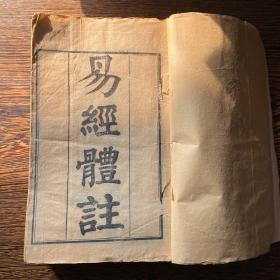 易經體註